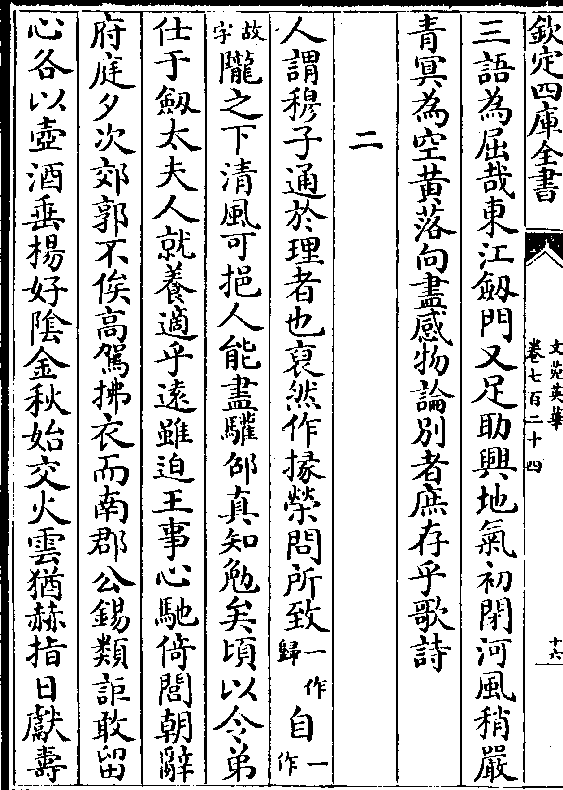 欽定四庫全書
文苑英華
卷七百二十四
十六
三語為屈哉東江劔門又足助興地氣初閉河風稍嚴
青冥為空黄落向盡感物論別者庶存乎歌詩
二
人謂穆子通於理者也裒然作掾榮問所致一作歸自一作
故字隴之下清風可挹人能盡驩郤真知勉矣頃以令弟
仕于劔太夫人就養適乎遠雖迫王事心馳倚閭朝辭
府庭夕次郊郭不俟高駕拂衣而南郡公錫類詎敢留
心各以壺酒垂楊好陰金秋始交火雲猶赫指日獻壽